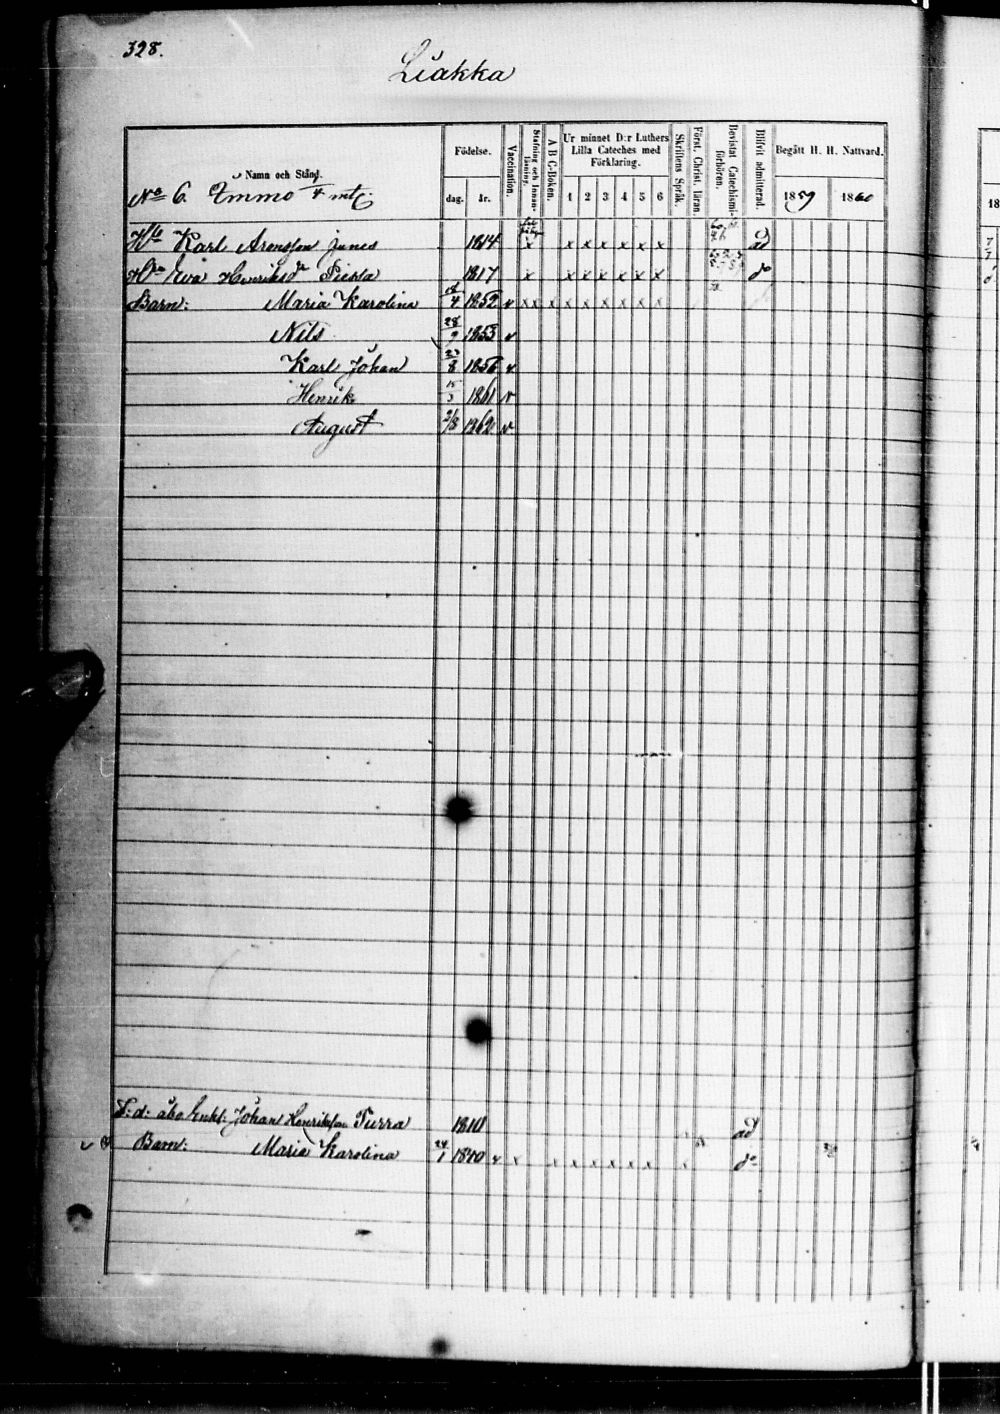 328.
Liakka
Namn och Stånd.
Födelse.
dag. år.
Vaccination.
Stafning och Innanläsning.
A B C-Boken.
Ur minnet D:r Luthers Lilla Cateches med Förklaring.
1 2 3 4 5 6
Skriftens Språk.
Först. Christ. läran.
Bevistat Catechismi-förhören.
Blifvit admitterad.
Begått H. H. Nattvard.
1859 1860 18
No 6. Immo 4 mtl.
Karl Aronsson junes 1814 x x x x x x x ad
Eva Henriksdr Piekka 1817 x x x x x x x do
Barn: Maria Karolina 1852 v x x x x x x x x x
Nils 28/9 1853 v
Karl Johan 23/8 1856 v
Henrik 15/3 1861 v
August 1862 v
F:d: åbo Enkl: Johan Henriksson Purra 1810 ad
Barn: Maria Karolina 24/1 1840 v x x x x x x x x do